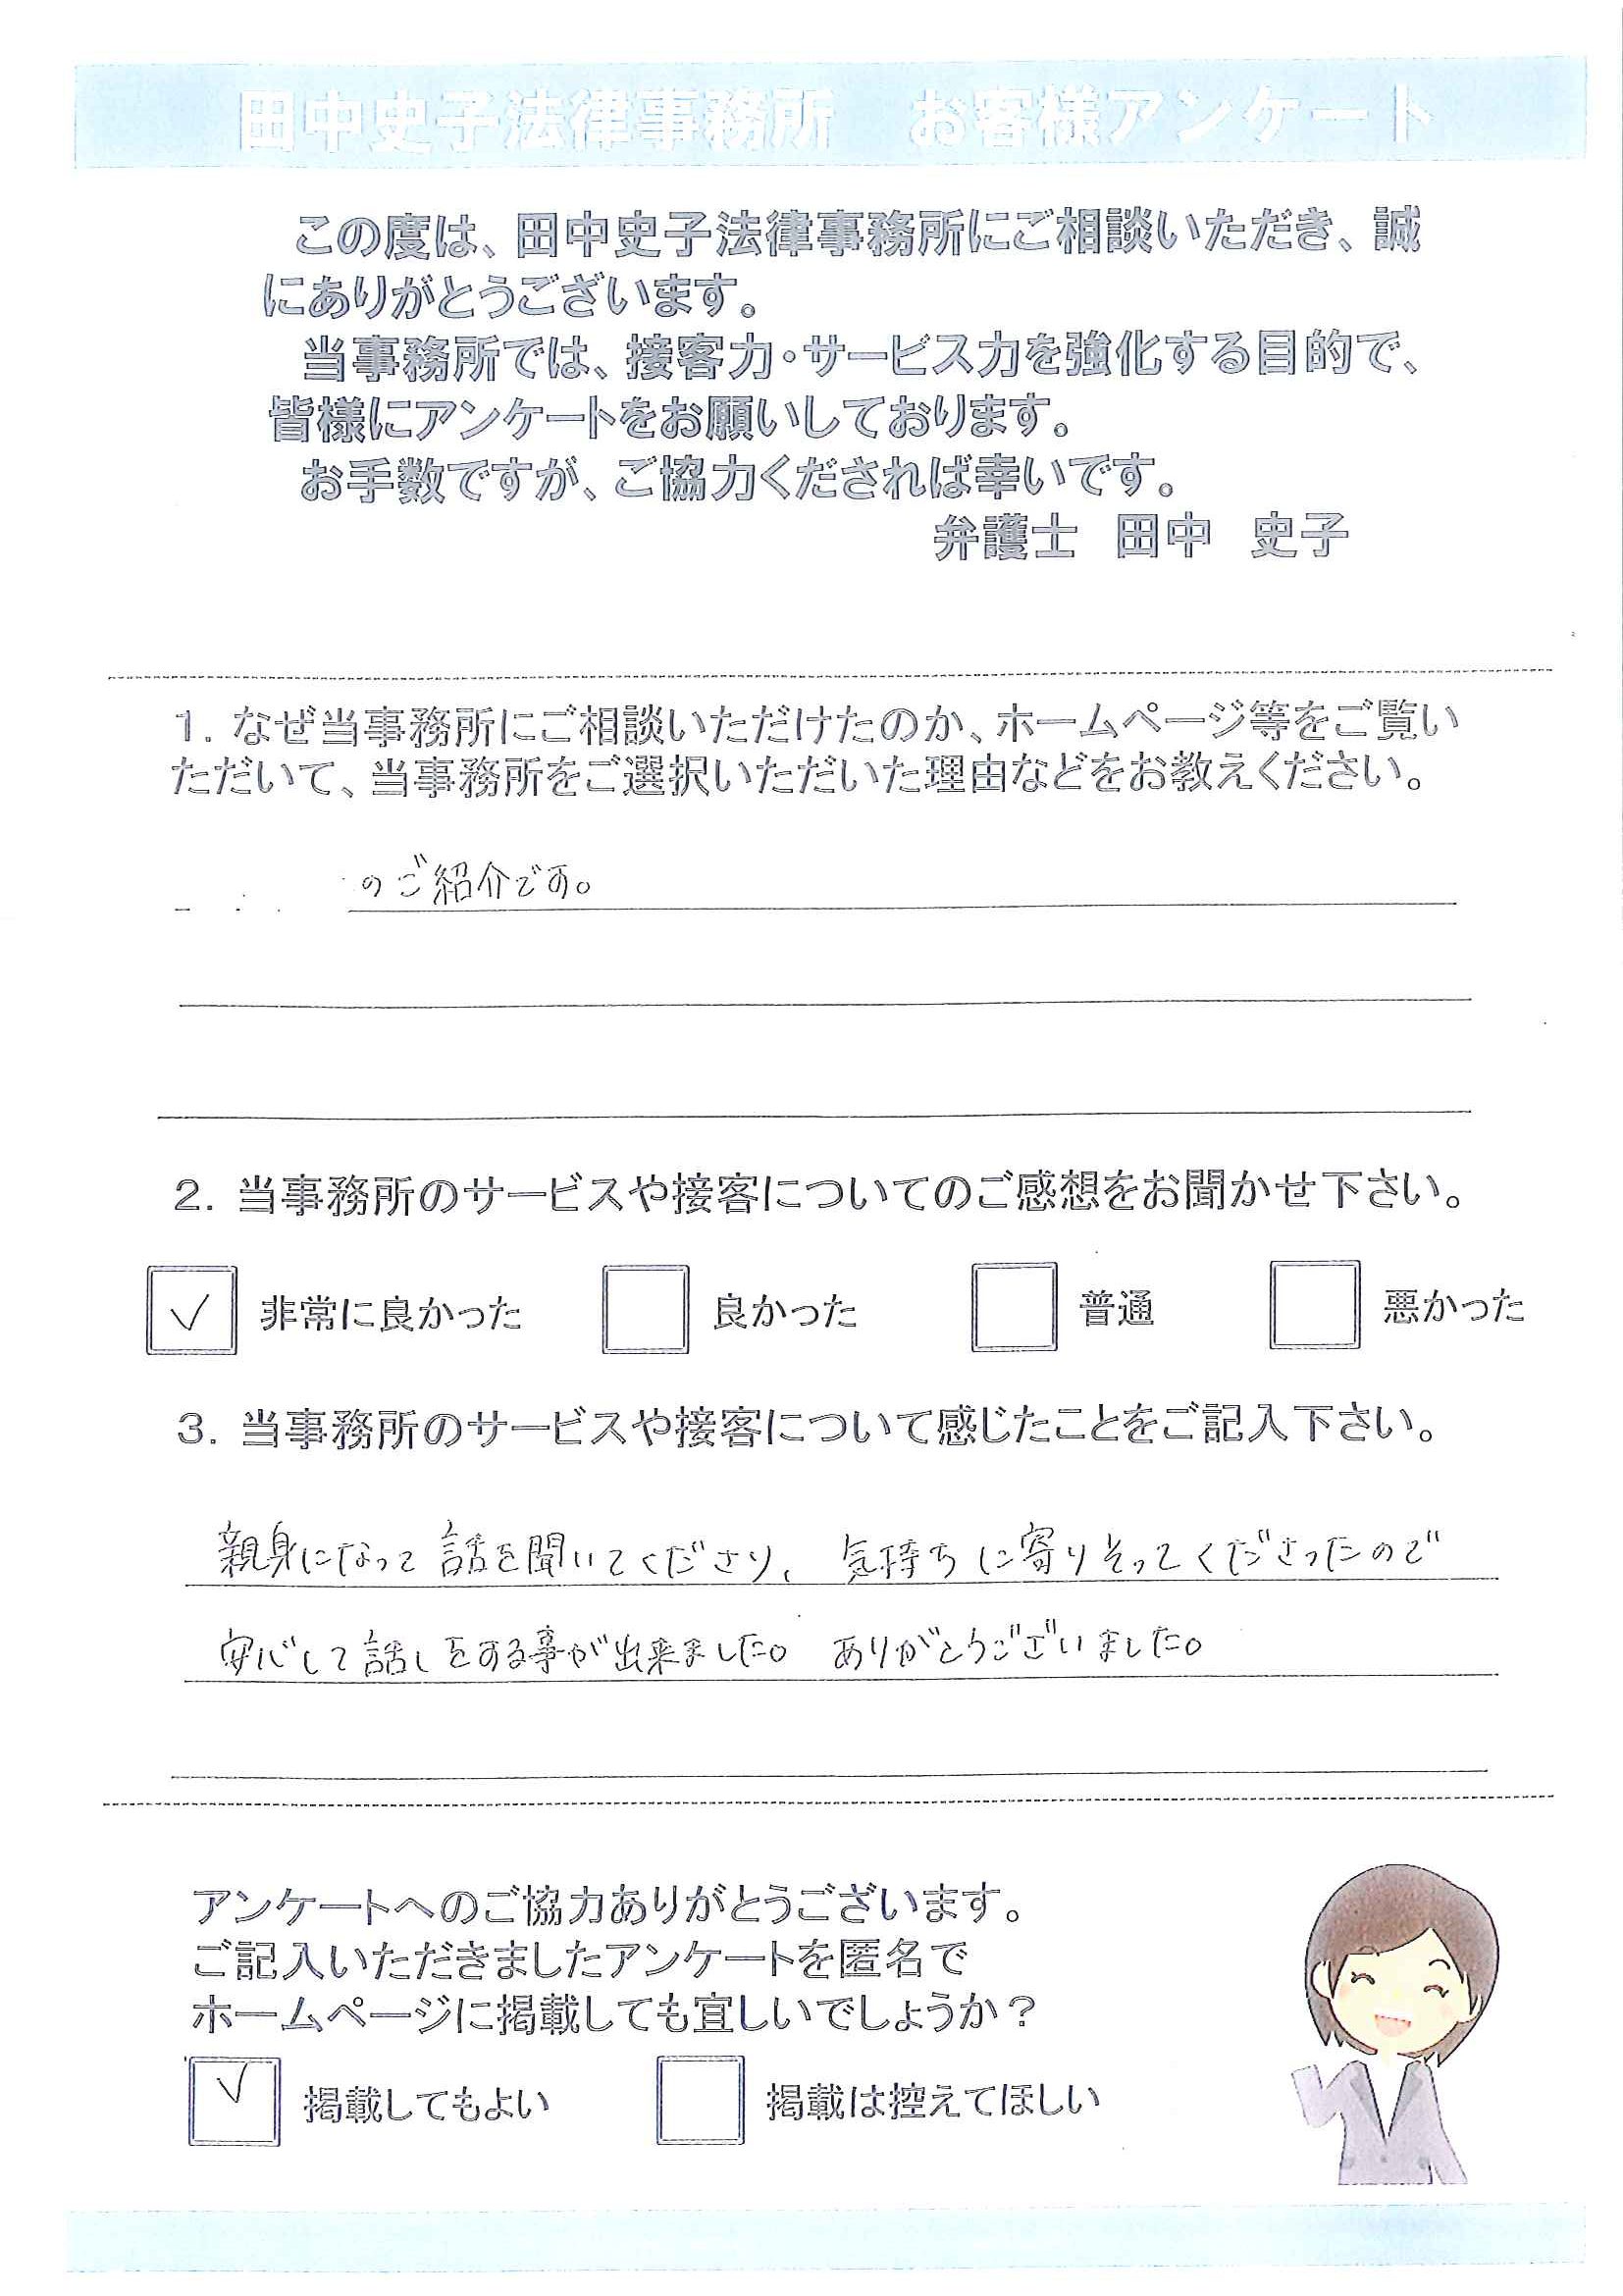 田中史子法律事務所　お客様アンケート
この度は、田中史子法律事務所にご相談いただき、誠
にありがとうございます。
当事務所では、接客力・サービス力を強化する目的で、
皆様にアンケートをお願いしております。
お手数ですが、ご協力くだされば幸いです。
弁護士　田中　史子
1. なぜ当事務所にご相談いただけたのか、ホームページ等をご覧い
ただいて、当事務所をご選択いただいた理由などをお教えください。
のご紹介です。
2. 当事務所のサービスや接客についてのご感想をお聞かせ下さい。
✓ 非常に良かった　良かった　普通　悪かった
3. 当事務所のサービスや接客について感じたことをご記入下さい。
親身になって話を聞いてくださり、気持ちに寄りそってくださったので
安心して話しをする事が出来ました。ありがとうございました。
アンケートへのご協力ありがとうございます。
ご記入いただきましたアンケートを匿名で
ホームページに掲載しても宜しいでしょうか？
✓ 掲載してもよい　掲載は控えてほしい